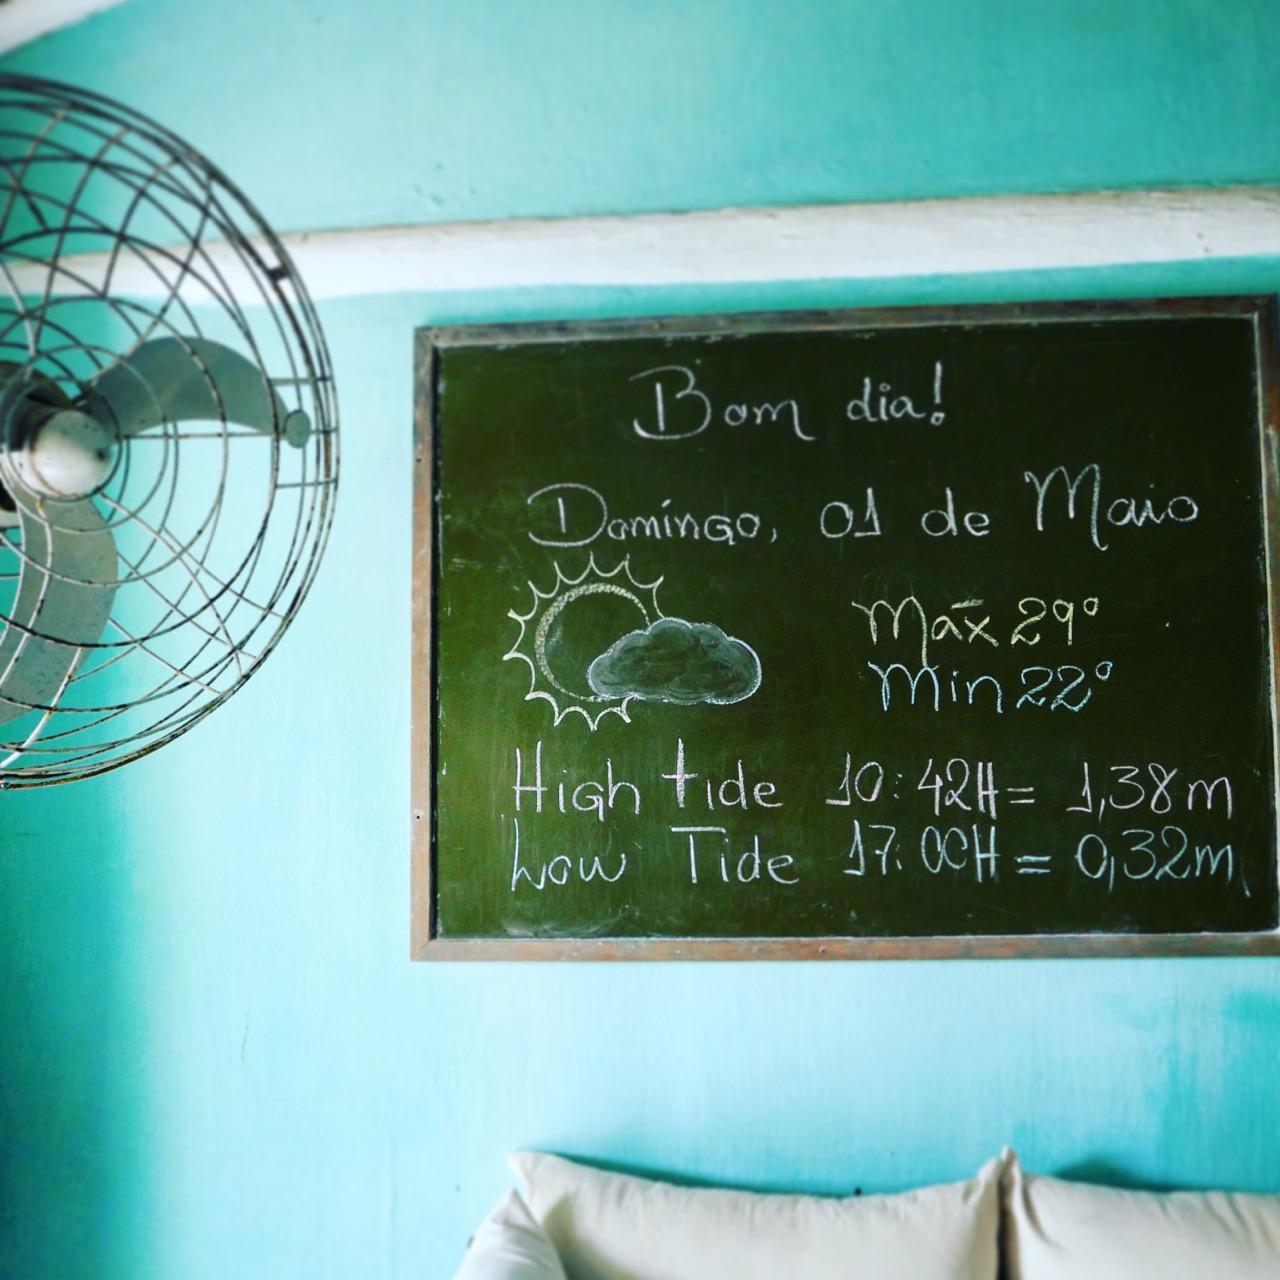 Bom dia!
Domingo, 01 de Maio
Máx 29°
Min 22°
High tide 10:42H = 1,38m
Low Tide 17:00H = 0,32m